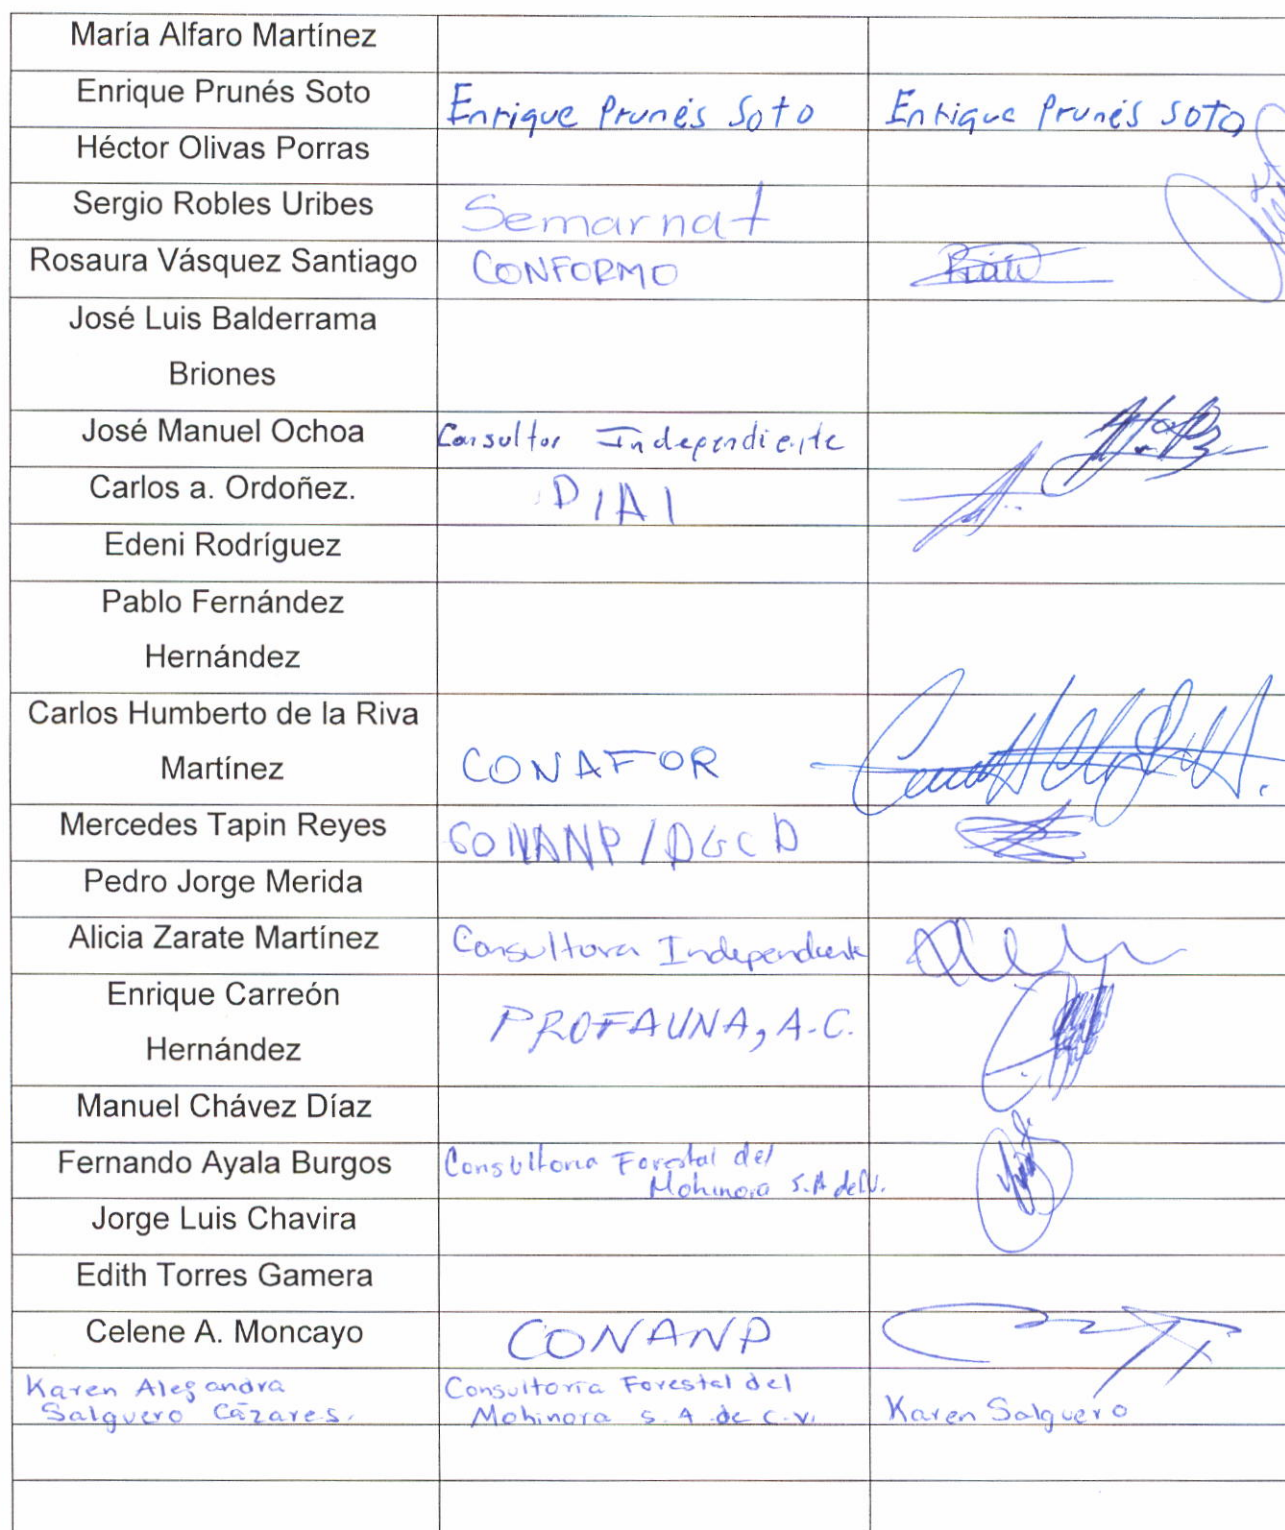 María Alfaro Martínez
Enrique Prunés Soto Enrique Prunés Soto Enrique Prunés Soto
Héctor Olivas Porras
Sergio Robles Uribes Semarnat
Rosaura Vásquez Santiago CONFORMO
José Luis Balderrama
Briones
José Manuel Ochoa Consultor Independiente
Carlos a. Ordoñez. DIAI
Edeni Rodríguez
Pablo Fernández
Hernández
Carlos Humberto de la Riva
Martínez CONAFOR
Mercedes Tapin Reyes CONANP/DGCD
Pedro Jorge Merida
Alicia Zarate Martínez Consultora Independiente
Enrique Carreón
Hernández PROFAUNA, A.C.
Manuel Chávez Díaz
Fernando Ayala Burgos Consultoria Forestal del
Mohinora S.A de C.V.
Jorge Luis Chavira
Edith Torres Gamera
Celene A. Moncayo CONANP
Karen Alejandra Consultoría Forestal del
Salguero Cázares. Mohinora S.A de C.V. Karen Salguero